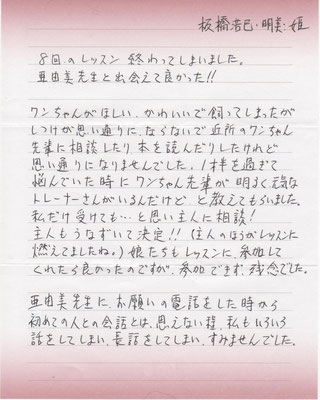 板橋浩巳・明美・姫
8回のレッスン終わってしまいました。
亜由美先生と出会えて良かった!!
ワンちゃんがほしい、かわいいで飼ってしまったが
しつけが思い通りに、ならないで近所のワンちゃん
先輩に相談したり本を読んだりしたけれど
思い通りになりませんでした。1才半を過ぎて
悩んでいた時にワンちゃん先輩が明るく元気な
トレーナーさんがいるんだけどと教えてもらいました。
私だけ受けても…と思い主人に相談!
主人もうなずいて決定!!(主人のほうがレッスンに
燃えてましたね。)娘たちもレッスンに、参加して
くれたら良かったのですが、参加できず残念でした。
亜由美先生に、お願いの電話をした時から
初めての人との会話とは、思えない程、私もいろいろ
話をしてしまい、長話をしてしまい、すみませんでした。